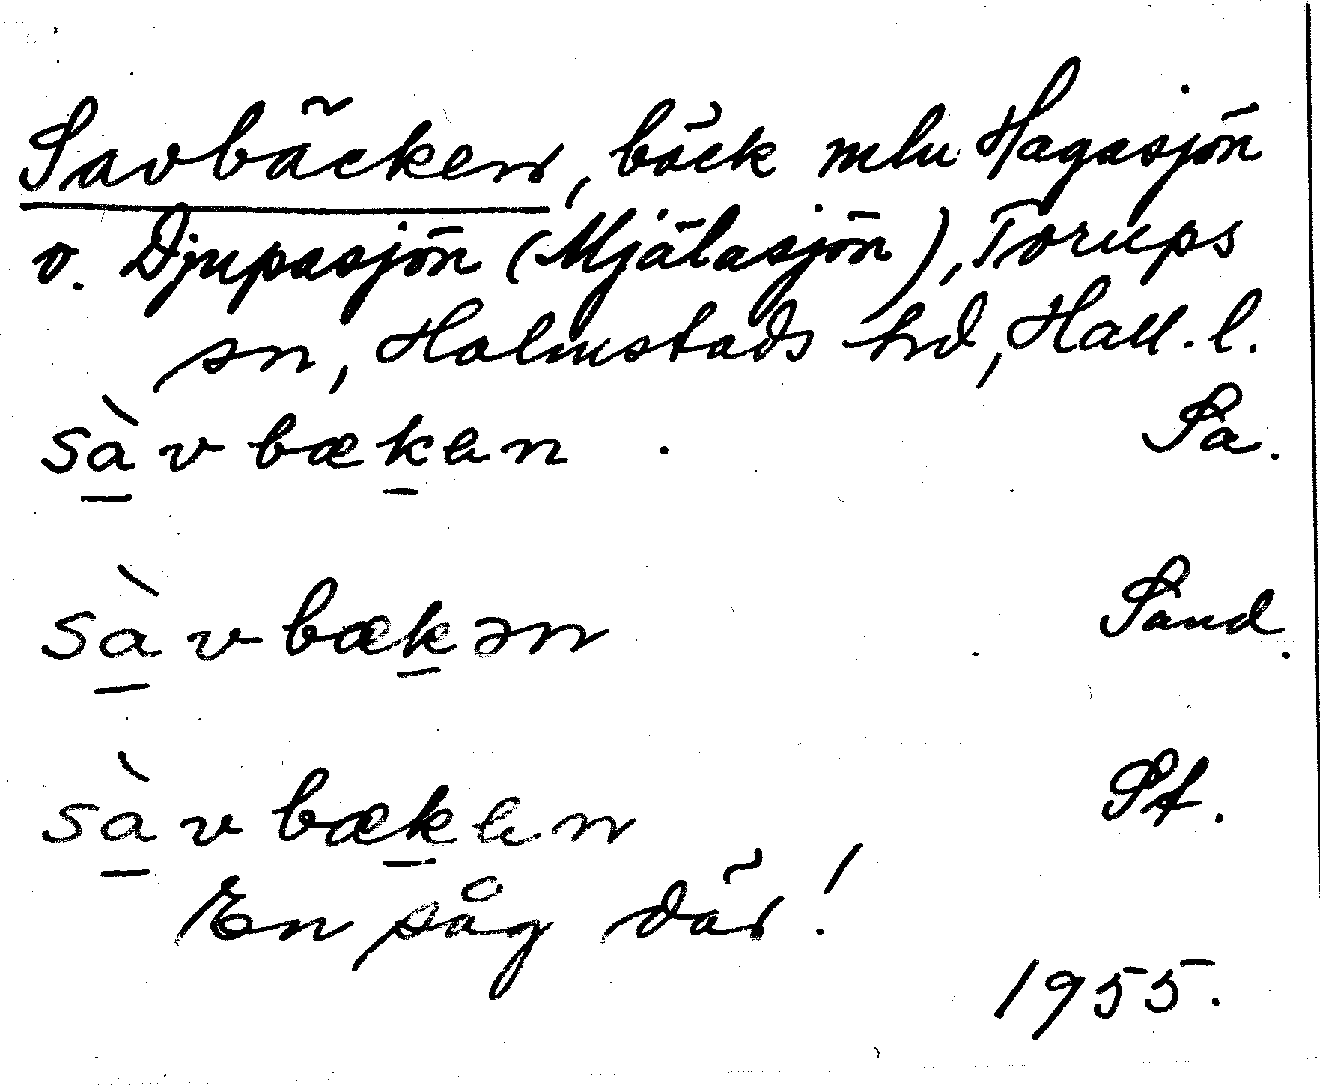 Savbäcken, bäck mlu Hagasjön
o. Djupasjön (Mjälasjön), Torups
sn, Halmstads hd, Hall. l.
sàvbækan Sa.
sàvbækən Sand.
sàvbækan St.
En såg där!
1955.